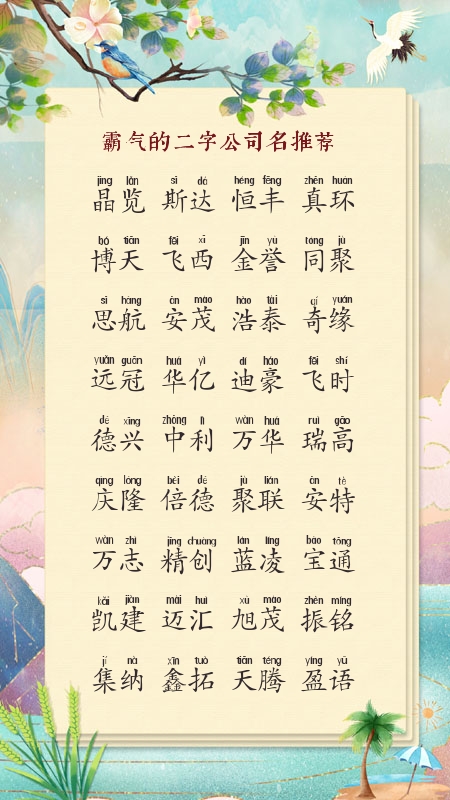 霸气的二字公司名推荐
jīng lǎn sī dá héng fēng zhēn huán
晶览 斯达 恒丰 真环
bó tiān fēi xī jīn yù tóng jù
博天 飞西 金誉 同聚
sī háng ān mào hào tài qí yuán
思航 安茂 浩泰 奇缘
yuǎn guān huá yì dí háo fēi shí
远冠 华亿 迪豪 飞时
dé xīng zhōng lì wàn huá ruì gāo
德兴 中利 万华 瑞高
qìng lóng bèi dé jù lián ān tè
庆隆 倍德 聚联 安特
wàn zhì jīng chuàng lán líng bǎo tōng
万志 精创 蓝凌 宝通
kǎi jiàn mài huì xù mào zhèn míng
凯建 迈汇 旭茂 振铭
jí nà xīn tuò tiān téng yíng yǔ
集纳 鑫拓 天腾 盈语